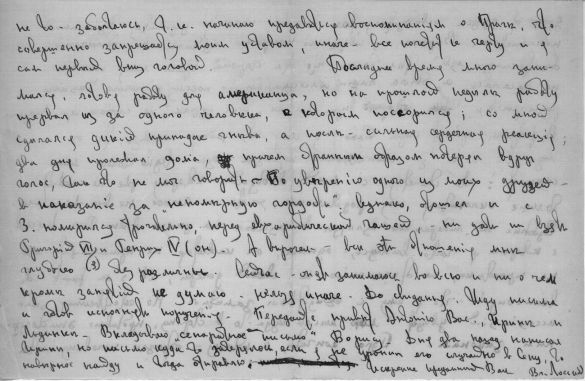 не то - заболтаюсь, т.е. начинаю предаваться воспоминаніям о Праге, что
совершенно запрещается моим уставом, иначе - все пойдет к черту и я
сам первый вниз головой. Последнее время много зани-
мался, готовя работу для американца, но на прошлой неделе работу
прервал из за одного человечка, с которым поссорился; со мной
сделался дикій припадок гнева, а после - сильная сердечная реакція;
два дня пролежал дома, причем странным образом потерял вдруг
голос, так что не мог говорить - по увѣренію одного из моих друзей -
в наказаніе за "непомерную гордость". Однако, пошел и с
З. помирился трогательно, перед евхаристической чашей, - ни дать ни взять
Григорій VII и Генрих IV (он). А впрочем - все эти отношенія мне
глубоко (3) безразличны. Сейчас - опять занимаюсь во всю и ни о чем
кроме занятій не думаю - нельзя иначе. До свиданья. Жду письма
и готов исполнить порученія. Передайте привет Вас., Ирине и
Вкладываю "сепаратное" письмо Борису. Дня два назад написал
Ирине, но письмо куда-то затерялось, если я не уронил его случайно в Сену, то
наверное найду и тогда отправлю. Искренне преданный Вам Вл. Лосскій